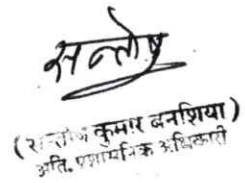 सन्तोष
(सन्तोष कुमार बनशिया)
अति. प्रशासनिक अधिकारी